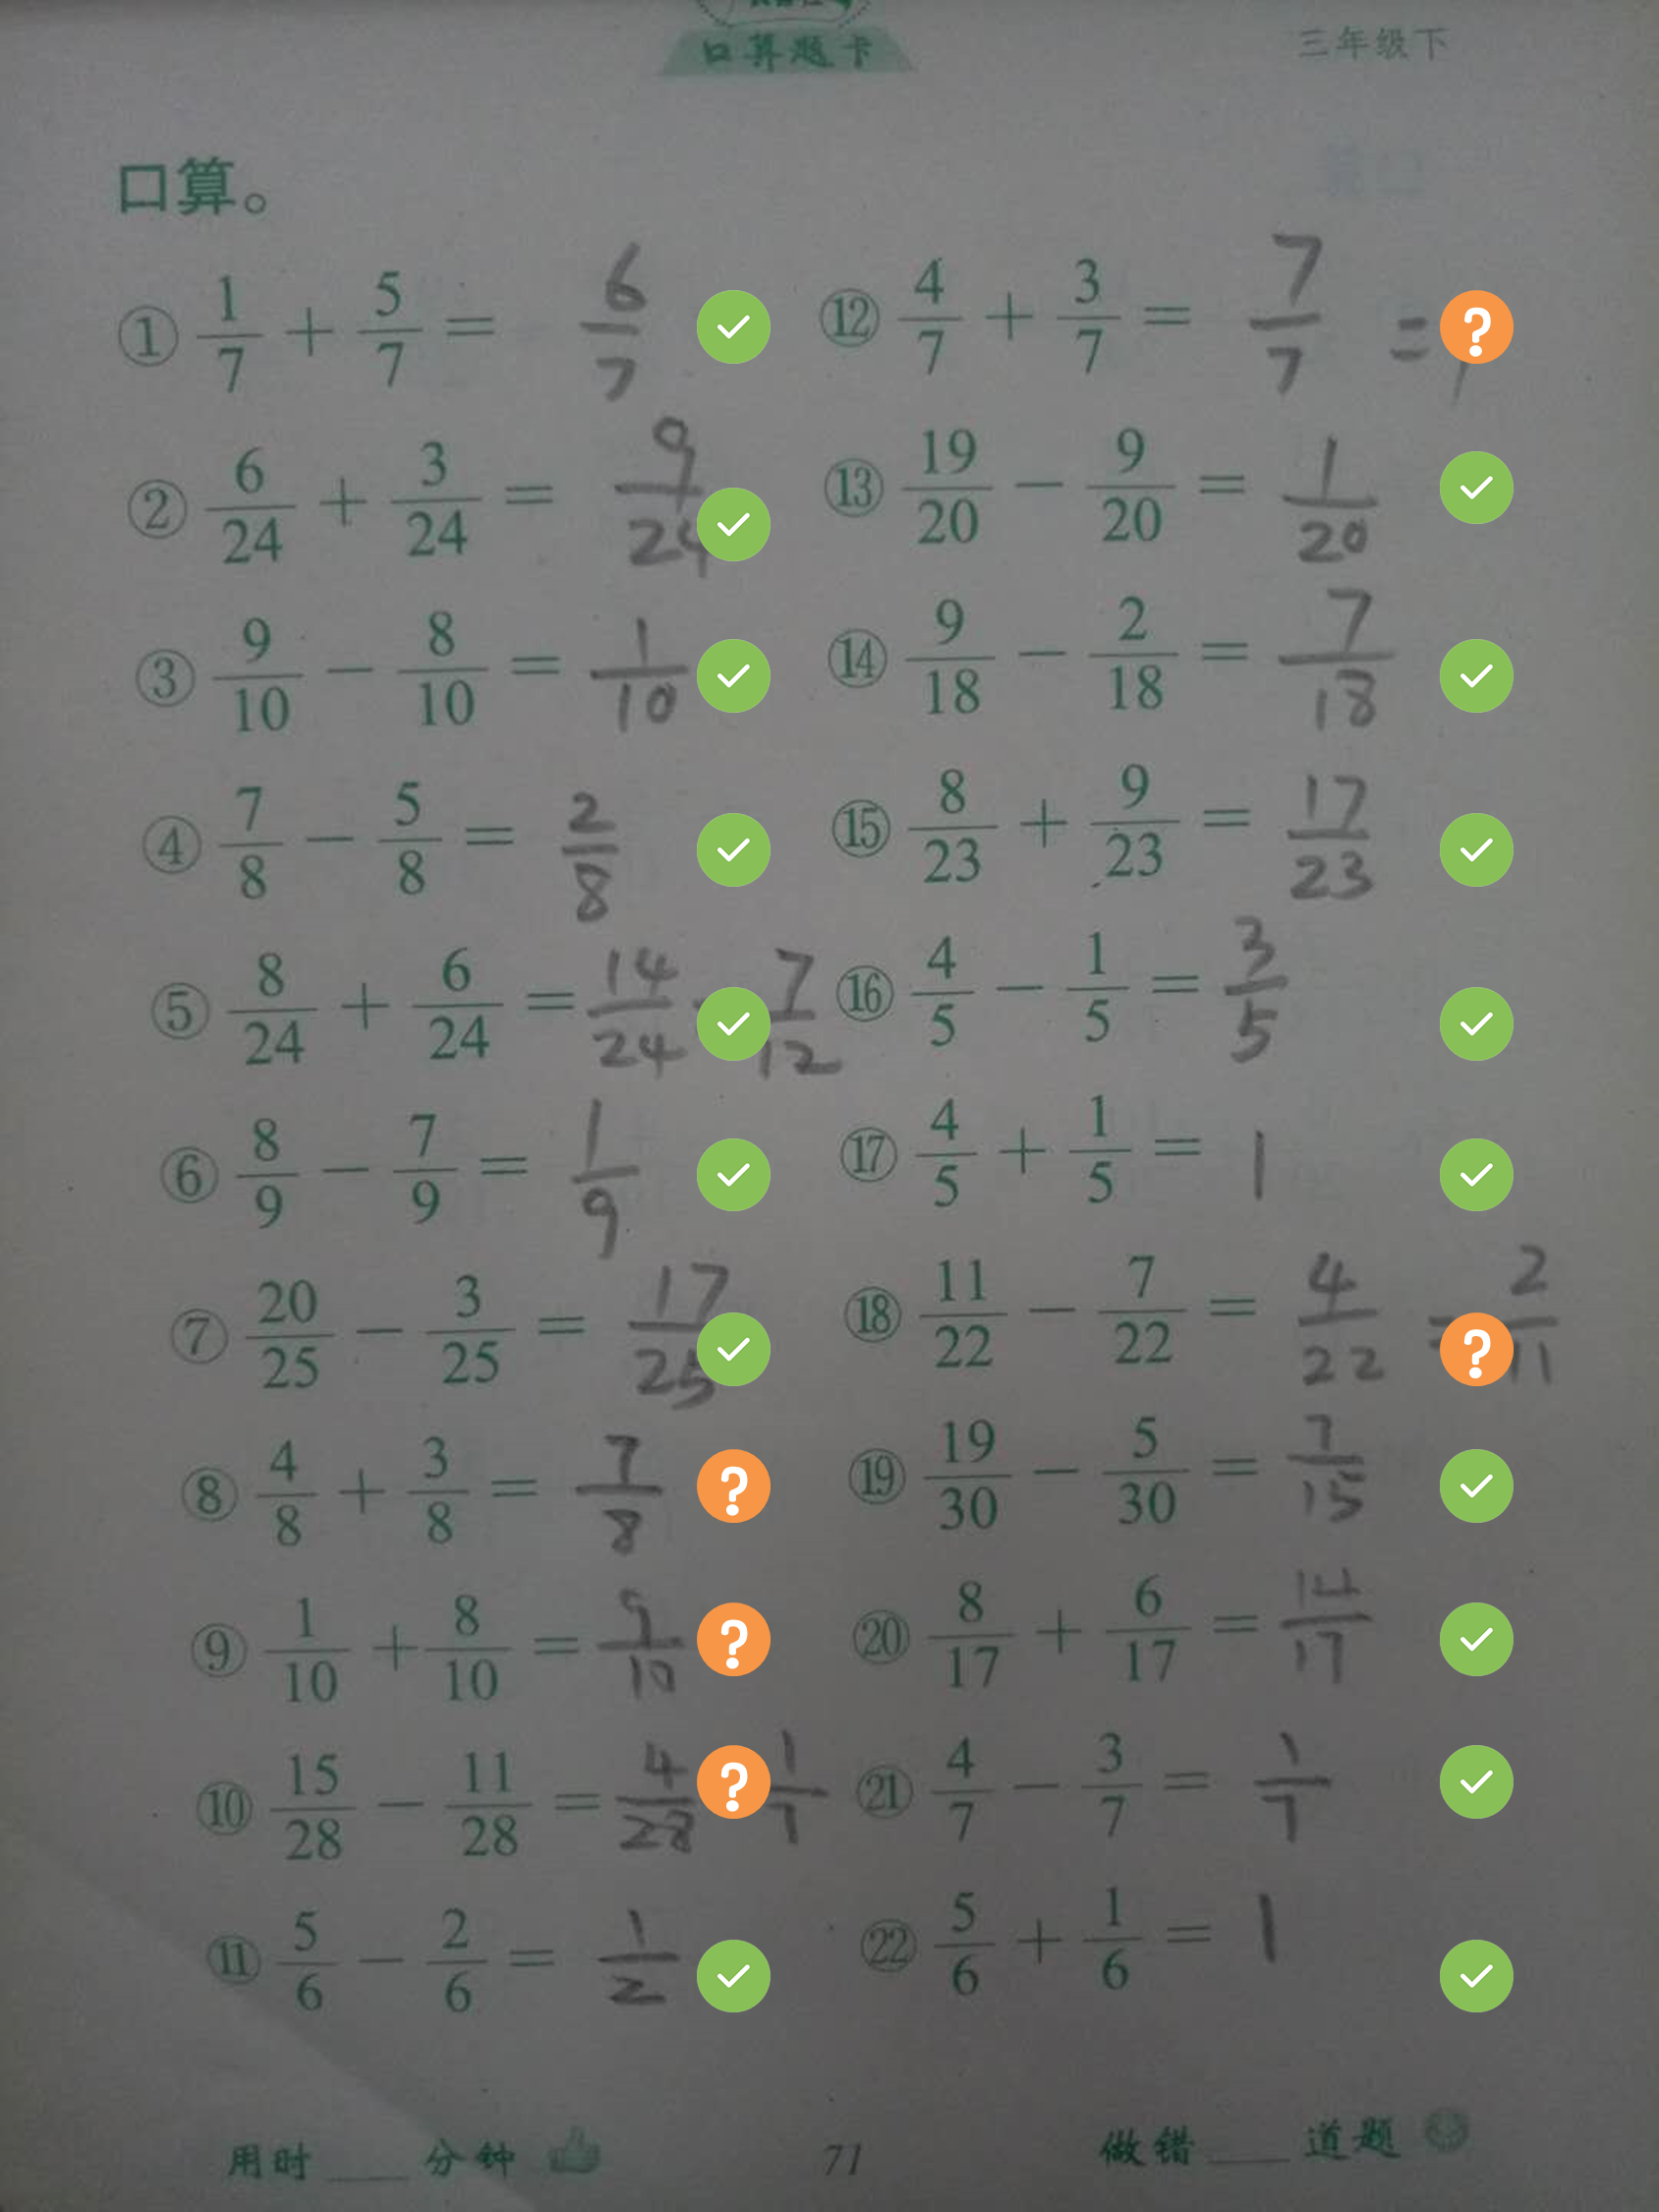 口算题卡
三年级下
口算。
① 1/7 + 5/7 = 6/7
② 6/24 + 3/24 = 9/24
③ 9/10 − 8/10 = 1/10
④ 7/8 − 5/8 = 2/8
⑤ 8/24 + 6/24 = 14/24 7/12
⑥ 8/9 − 7/9 = 1/9
⑦ 20/25 − 3/25 = 17/25
⑧ 4/8 + 3/8 = 7/8
⑨ 1/10 + 8/10 = 9/10
⑩ 15/28 − 11/28 = 4/28 1/7
⑪ 5/6 − 2/6 = 1/2
⑫ 4/7 + 3/7 = 7/7 = 1
⑬ 19/20 − 9/20 = 1/20
⑭ 9/18 − 2/18 = 7/18
⑮ 8/23 + 9/23 = 17/23
⑯ 4/5 − 1/5 = 3/5
⑰ 4/5 + 1/5 = 1
⑱ 11/22 − 7/22 = 4/22 = 2/11
⑲ 19/30 − 5/30 = 7/15
⑳ 8/17 + 6/17 = 14/17
㉑ 4/7 − 3/7 = 1/7
㉒ 5/6 + 1/6 = 1
用时____分钟
71
做错____道题